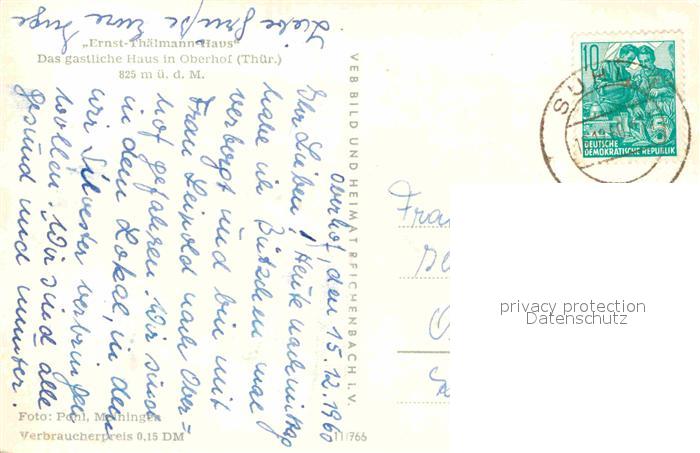 „Ernst-Thälmann-Haus"
Das gastliche Haus in Oberhof (Thür.)
825 m ü. d. M.
Oberhof, den 15.12.1960
Ihr Lieben, Heute nachmittag
habe ich Bützchen mal
verborgt und bin mit
Frau Leipold nach Ober=
hof gefahren. Wir sind
in dem Lokal, in dem
wir Silvester verbringen
wollen. Wir sind alle
gesund und munter.
Liebe Grüße Eure Inge
Foto: Pohl, Meiningen
Verbraucherpreis 0,15 DM
VEB BILD UND HEIMAT REICHENBACH i. V.
11/766
10
DEUTSCHE
DEMOKRATISCHE REPUBLIK
SUHL
Frau
privacy protection
Datenschutz